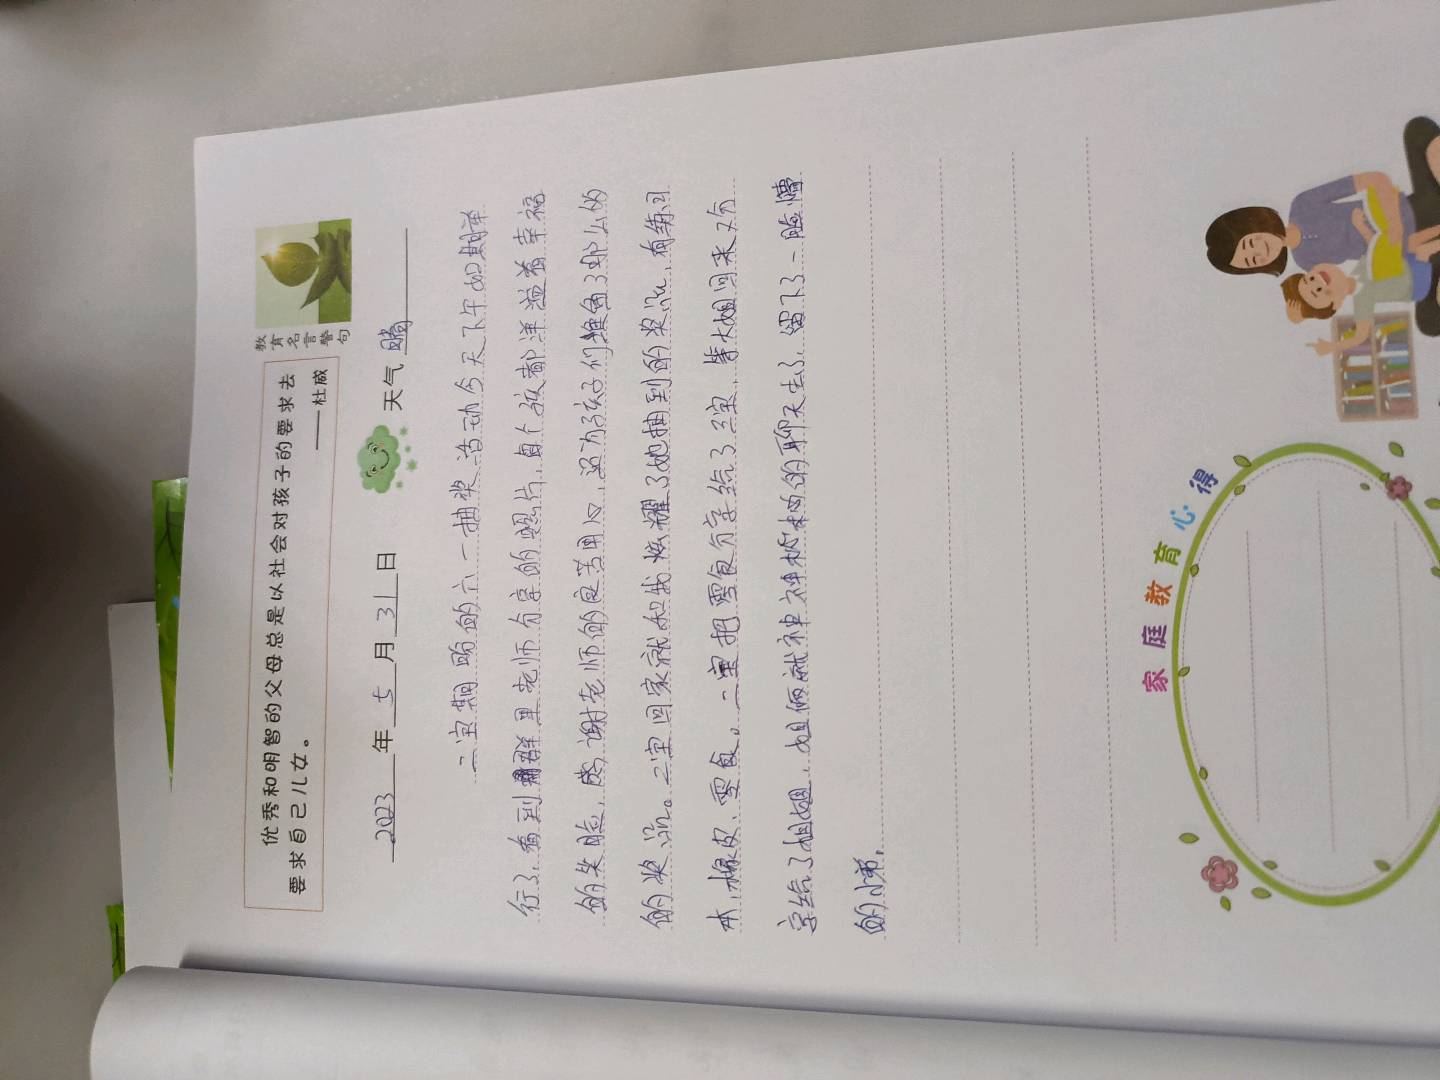 优秀和明智的父母总是以社会对孩子的要求去
要求自己儿女。
——杜威
教育名言警句
2023年5月31日 天气 晴
二宝期盼的六一抽奖活动今天下午如期举
行了,看到群里老师分享的照片,每个孩都洋溢着幸福
的笑脸,感谢老师的良苦用心,还为孩子们准备了那么多
的奖品。二宝回家就和我炫耀了她抽到的奖品,有练习
本,橡皮,零食。二宝把零食分享给了三宝,等大姐回来又分
享给了姐姐,姐俩就神神秘秘的聊天去了,留下了一脸懵
的小弟,
家庭教育心得